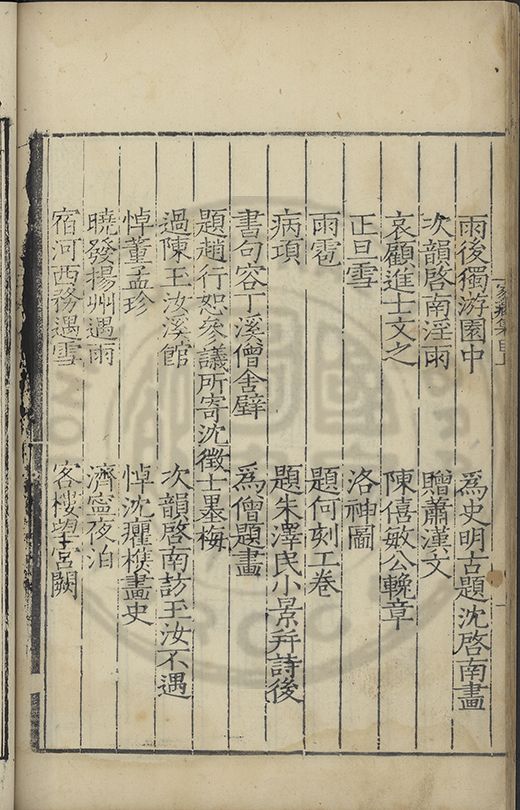 雨後獨游園中 爲史明古題沈啓南畫
次韻啓南淫雨 贈蕭漢文
哀顧進士文之 陳僖敏公輓章
正旦雪 洛神圖
雨雹 題何刻工卷
病項 題朱澤民小景幷詩後
書句容丁溪僧舍壁 爲僧題畫
題趙行恕參議所寄沈徵士墨梅
過陳玉汝溪館 次韻啓南訪玉汝不遇
悼董孟珍 悼沈臞樵畫史
曉發揚州遇雨 濟寧夜泊
宿河西務遇雪 客樓望宮闕
家藏集目